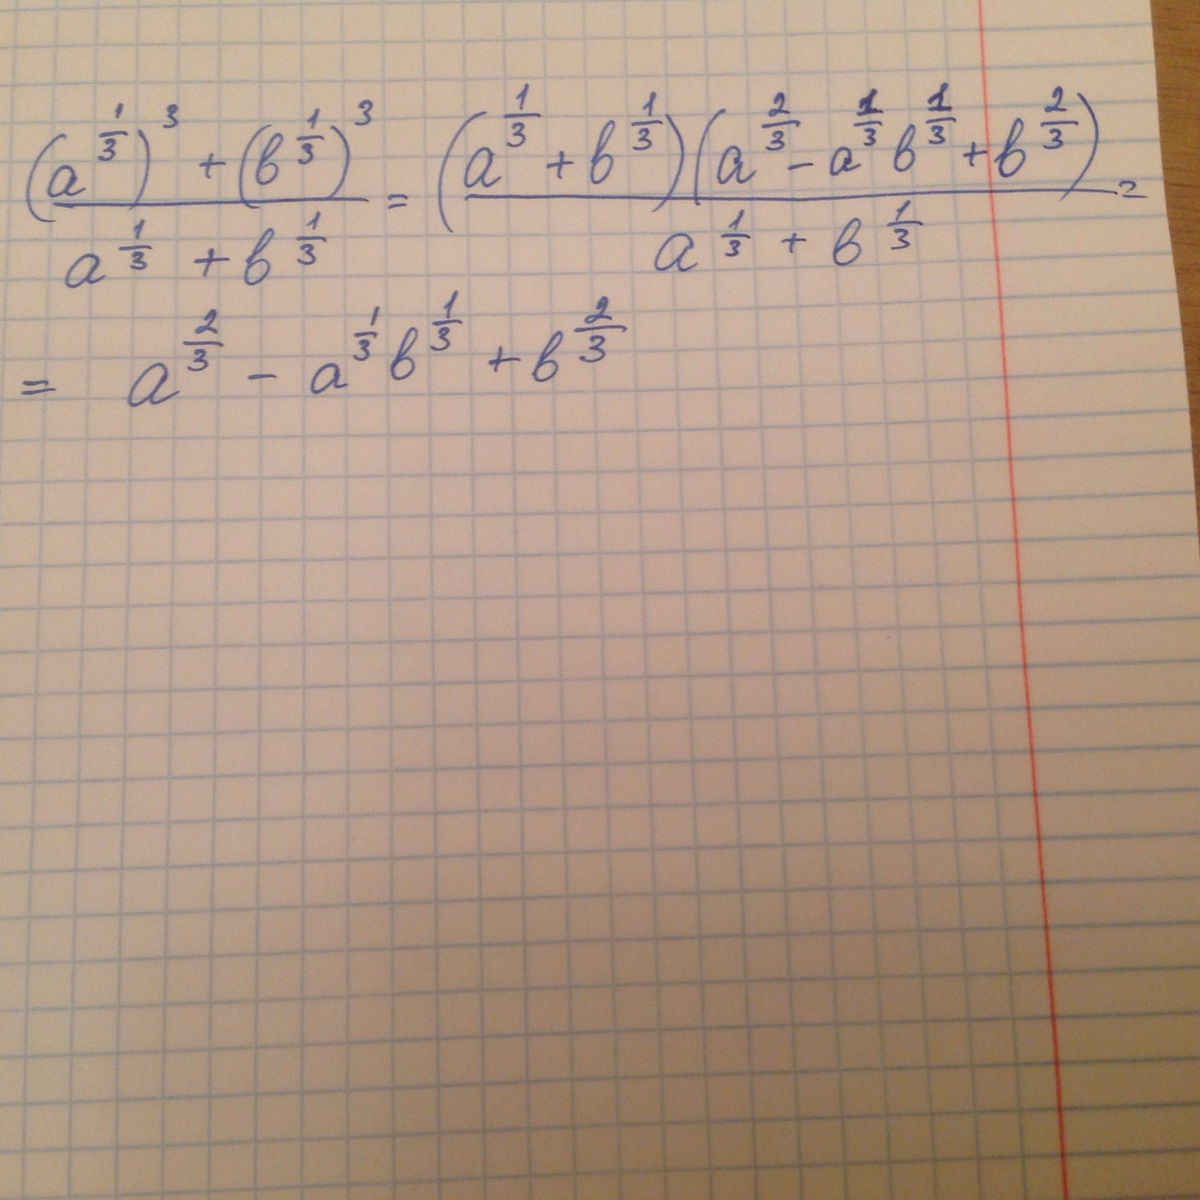 (a^(1/3))^3 + (в^(1/3))^3 / a^(1/3) + в^(1/3) = (a^(1/3) + в^(1/3))(a^(2/3) - a^(1/3) в^(1/3) + в^(2/3)) / a^(1/3) + в^(1/3) =
= a^(2/3) - a^(1/3) в^(1/3) + в^(2/3)